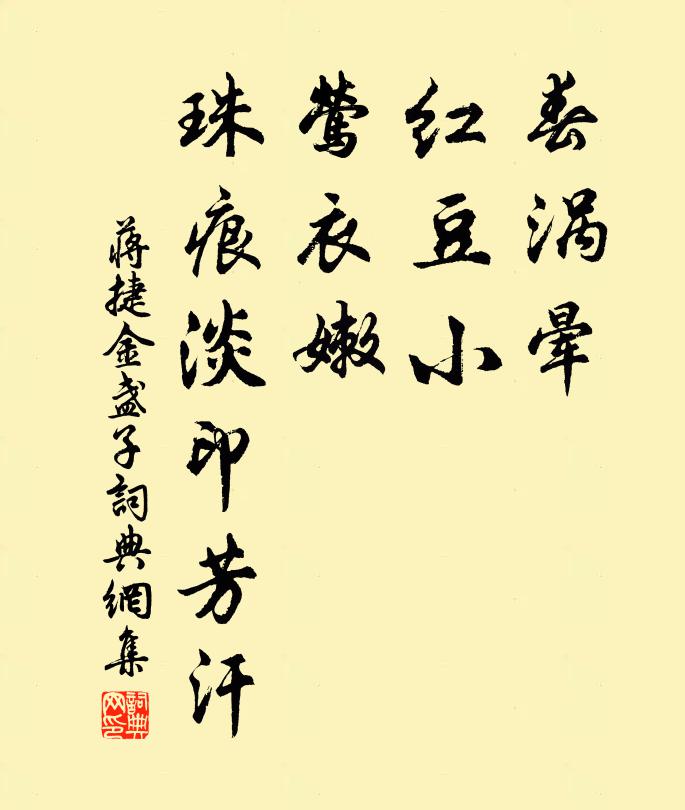 春涡晕
红豆小
莺衣嫩
珠痕淡印芳汗
蒋捷金盏子詞典網集
詞典网印